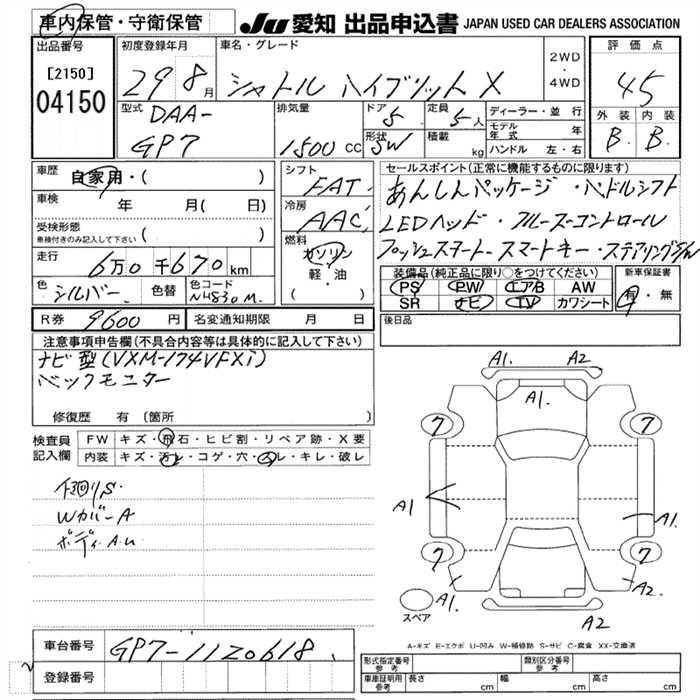 車内保管・守衛保管
JU 愛知 出品申込書 JAPAN USED CAR DEALERS ASSOCIATION
出品番号
[2150]
04150
初度登録年月
29 8月
車名・グレード
シャトル ハイブリット X
2WD
・
4WD
評価点
4.5
外装 内装
B. B.
型式
DAA-
GP7
排気量
1500 CC
ドア 5
形状 SW
定員 5人
積載 kg
ディーラー・並行
モデル年式 年
ハンドル 左・右
車歴 自家用・( )
車検 年 月( 日)
受検形態
車検付きのみ記入して下さい ( )
走行 6万0千670km
色 シルバー 色替 色コード NH830M.
シフト
FAT
冷房
AAC
燃料
ガソリン
軽・油
( )
セールスポイント(正常に機能するものに限ります)
あんしんパッケージ・パドルシフト
LEDヘッド・クルーズコントロール
プッシュスタート・スマートキー・ステアリングS/W
装備品(純正品に限り○をつけてください)
PS PW エアB AW
SR ナビ TV カワシート
新車保証書
有・無
R券 9600円 名変通知期限 月 日
後日品
注意事項申告欄(不具合内容等は具体的に記入して下さい)
ナビ型(VXM-174VFXi)
バックモニター
修復歴 有(箇所 )
検査員
記入欄
FW キズ・飛石・ヒビ割・リペア跡・X要
内装 キズ・汚レ・コゲ・穴・スレ・キレ・破レ
下廻りS
Wカバ-A
ボディA.U
A1. A2
A1.
7 7
A1 A1.
7 7
A1. A2
A1. A2
スペア
A-キズ E-エクボ U-凹み W-補修跡 S-サビ C-腐食 XX-交換済
車台番号 GP7-1120618
登録番号
形式指定番号 参考
類別区分番号 参考
車庫証明用 参考 長さ cm 幅 cm 高さ cm